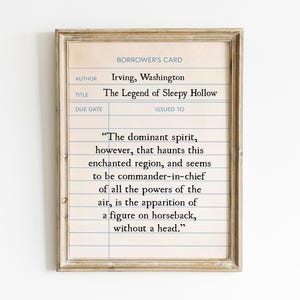 BORROWER'S CARD
AUTHOR Irving, Washington
TITLE The Legend of Sleepy Hollow
DUE DATE ISSUED TO
“The dominant spirit,
however, that haunts this
enchanted region, and seems
to be commander-in-chief
of all the powers of the
air, is the apparition of
a figure on horseback,
without a head.”